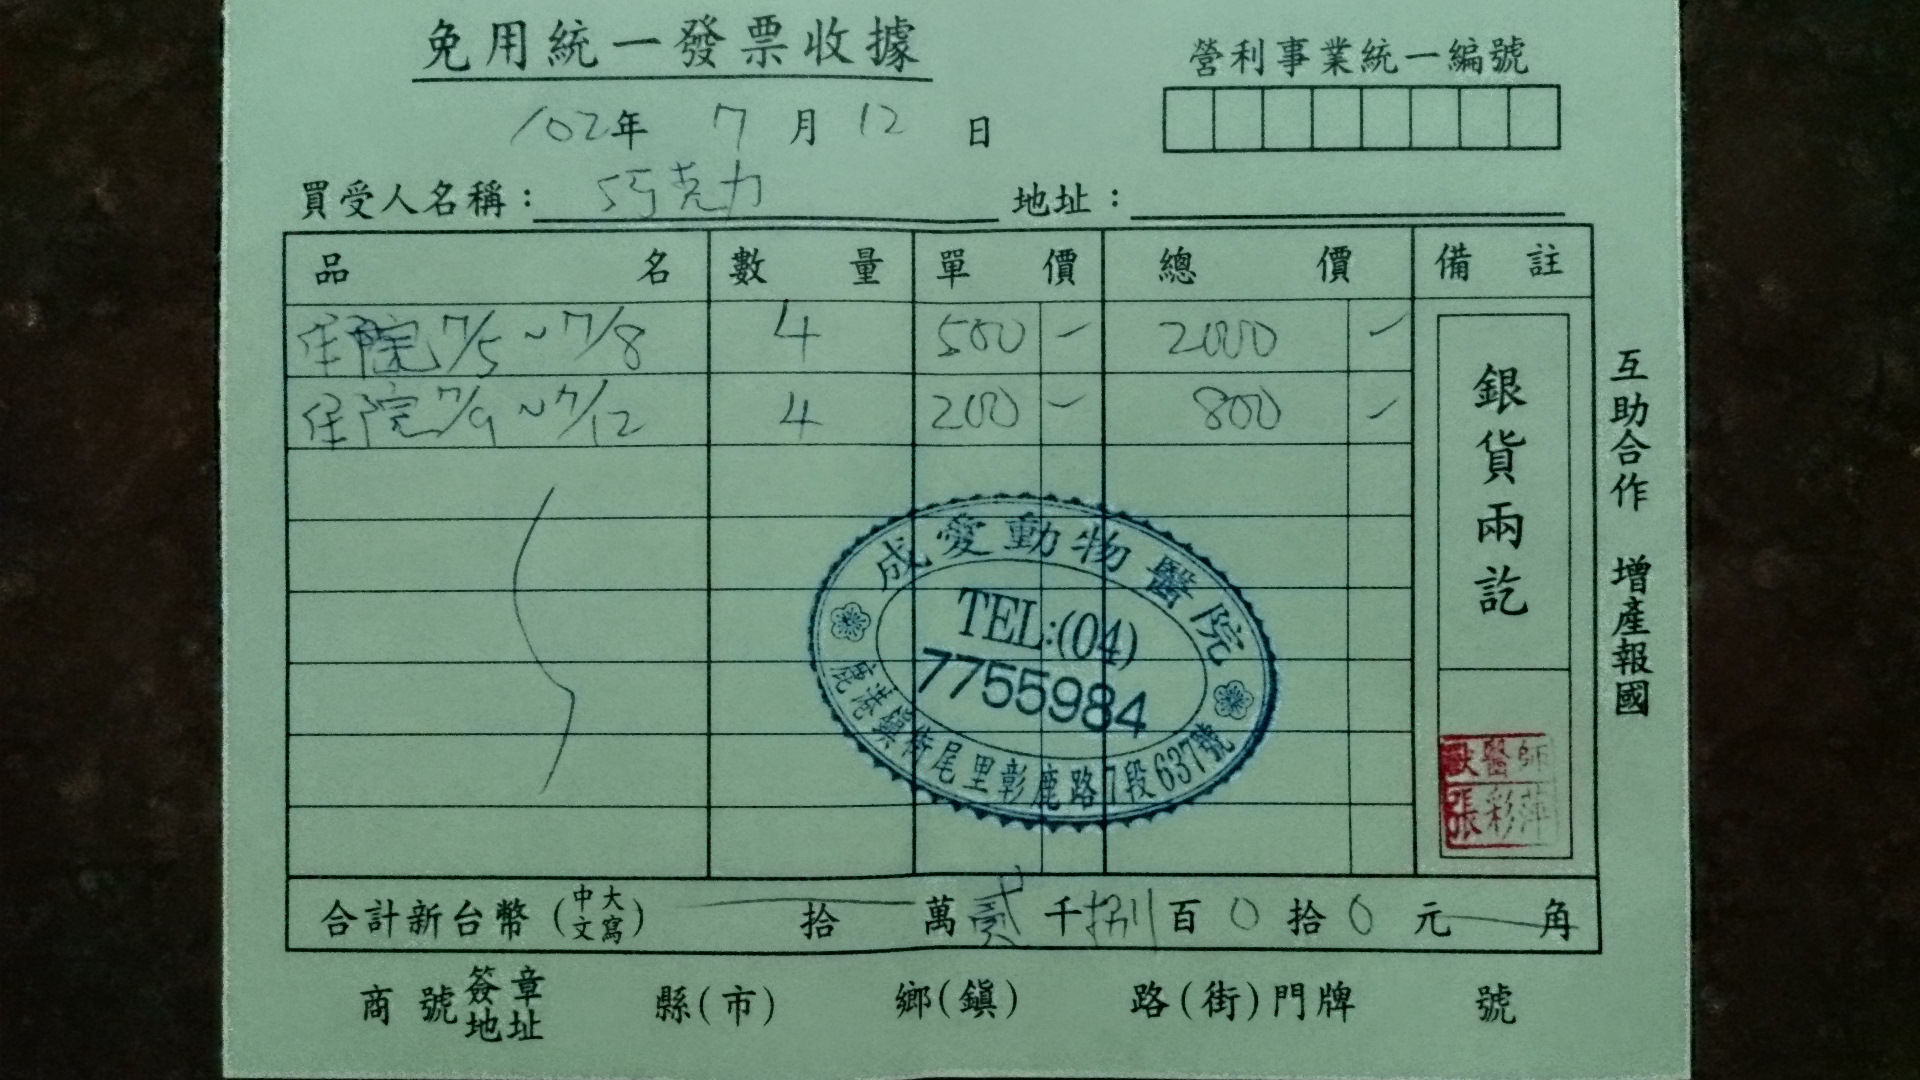 免用統一發票收據
營利事業統一編號
102年 7月 12日
買受人名稱：巧克力 地址：
品名 數量 單價 總價 備註
住院 7/5 ~ 7/8 4 500 - 2000 -
住院 7/9 ~ 7/12 4 200 - 800 -
銀貨兩訖
互助合作 增產報國
成愛動物醫院
TEL:(04)
7755984
鹿港鎮街尾里彰鹿路7段637號
獸醫師
張彩萍
合計新台幣(中文大寫) 拾 萬 貳 千 捌 百 0 拾 0 元 角
商號簽章地址 縣(市) 鄉(鎮) 路(街)門牌 號